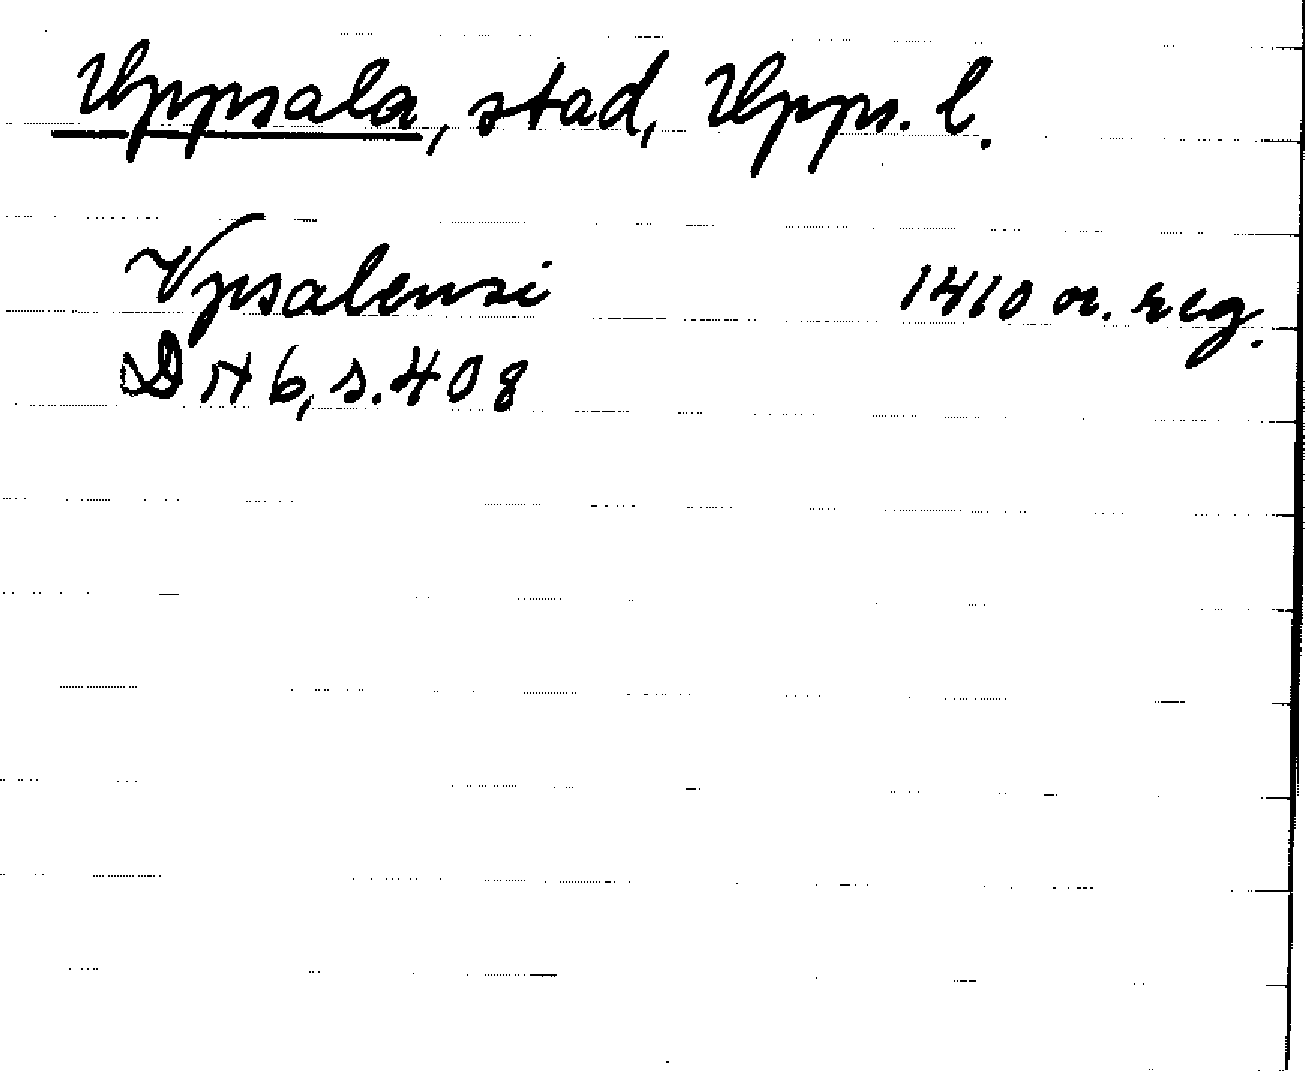 Uppsala, stad, Upps. l.
Vpsalensi 1410 or. reg.
DN 6, s. 408